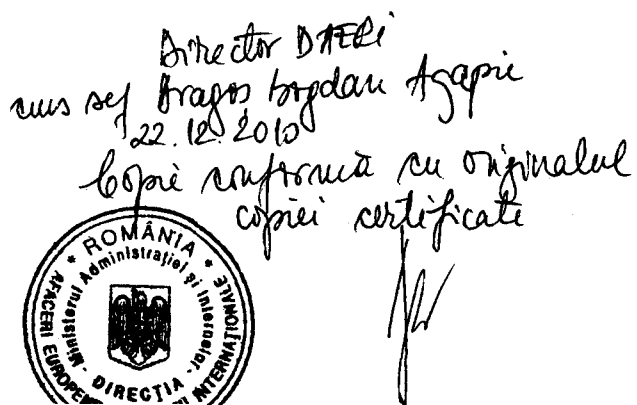 Director DAERI
cms șef Dragoș Bogdan Agapie
22.12.2010
Copie conformă cu originalul
copiei certificate
* ROMÂNIA *
Ministerul Administrației și Internelor
AFACERI EUROPENE INTERNAȚIONALE
- DIRECȚIA -